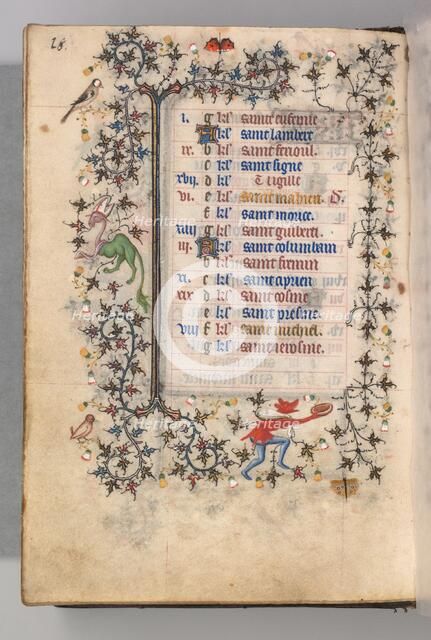 i. g kl' sainte eufemie
A kl' saint lambert
ix. b kl' saint ferioul.
c kl' saint signe
xvij. d kl' vigille
vi. e kl' saint mahieu
f kl' saint morice.
xiiij g kl' saint
iii. A kl' saint columbain
b kl' saint firmin
xi. c kl' saint cprien
xix d kl' saint cosme
e kl' saint
viij f kl' saint michiel.
g kl' saint ierosme.
Heritage
Heritage
Heritage
Heritage
Heritage